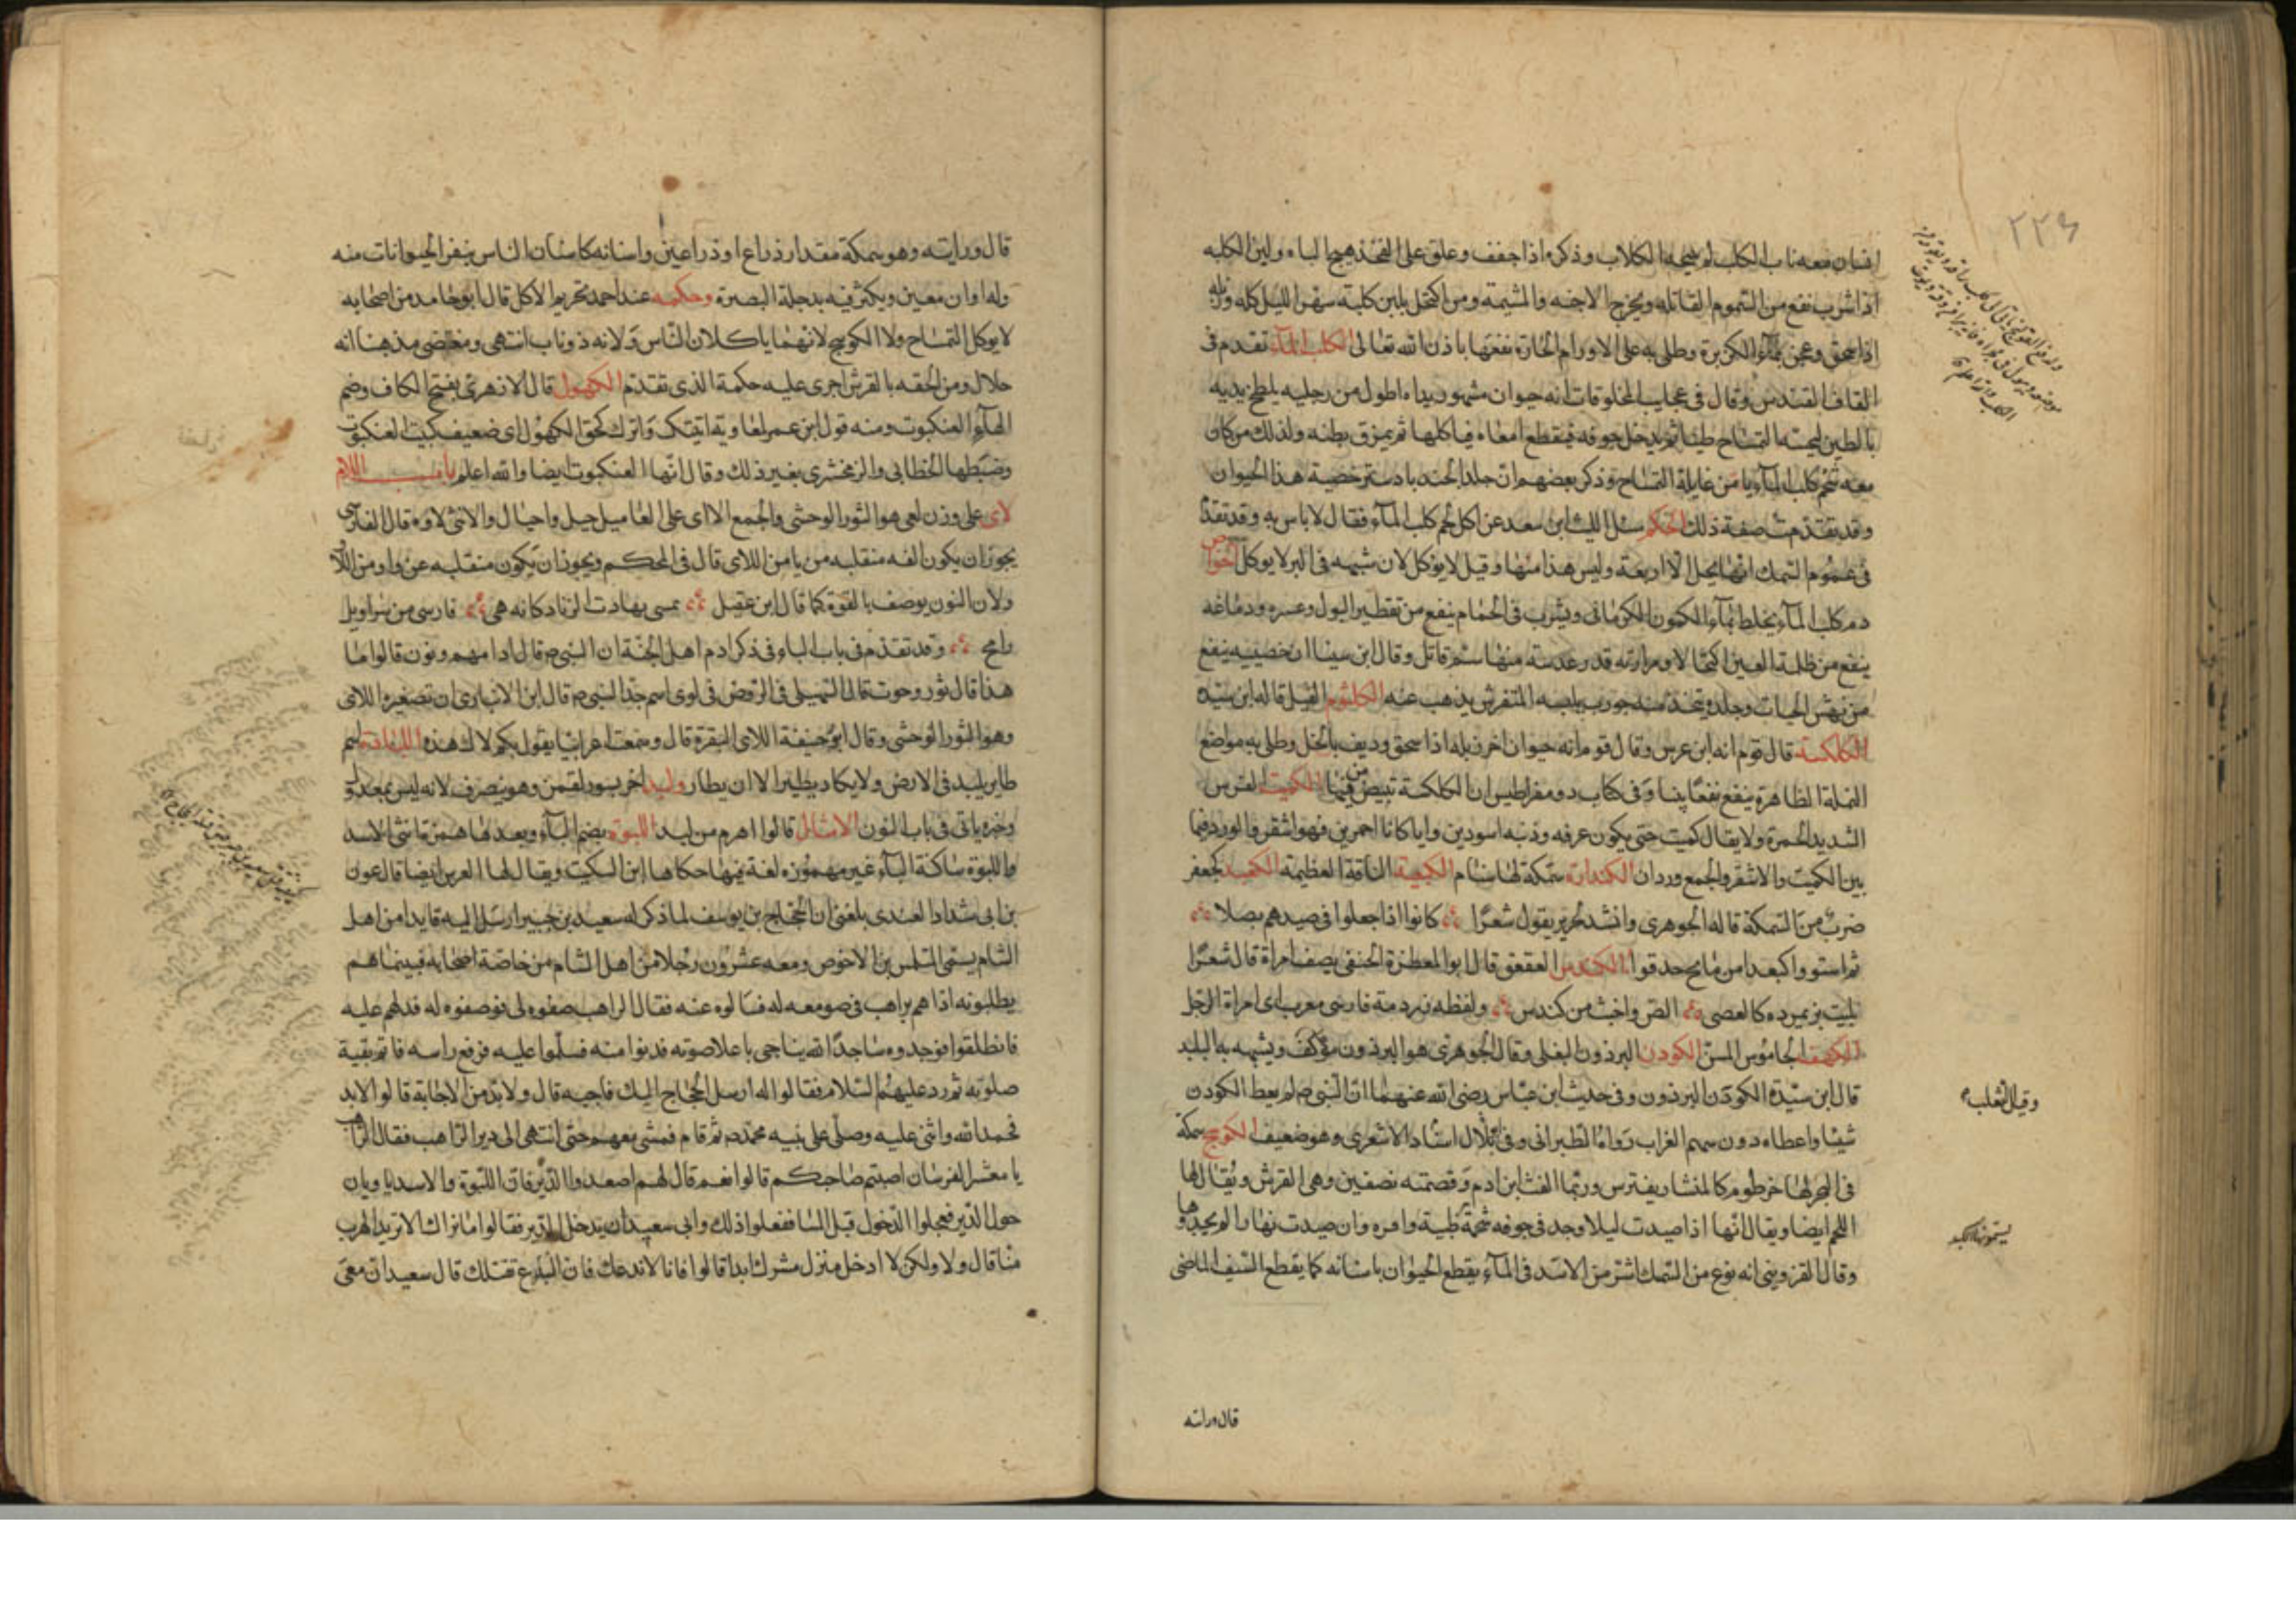 ٢٢٤
انسان معه ناب الكلب لم تنبحه الكلاب وذكره اذا جفف وعلق على الفخذ هيج الباه ولبن الكلبه
اذا شرب نفع من السموم القاتله ويخرج الاجنه والمشيمة ومن اكتحل بلبن كلبة سهر الليل كله وزبله
اذا سحق وعجن بمآء الكزبرة وطلى به على الاورام الحارة نفعها باذن الله تعالى الكلب المآء تقدم فى
القاف القندس وقال فى عجايب المخلوقات انه حيوان مشهور يداه اطول من رجليه يلطخ يديه
بالطين ليحسبه التمساح طينا ثم يدخل جوفه فيقطع امعاه فياكلها ثم يمزق بطنه ولذلك من كان
معه شحم كلب المآء يامن غايلة التمساح وذكر بعضهم ان جلد الجند بادستر خصية هذا الحيوان
وقد تقدمت صفة ذلك الحكم سئل الليث ابن سعد عن اكل لحم كلب المآء فقال لا باس به وقد تقدم
فى عموم السمك انها يحل الا اربعة وليس هذا منها وقيل لا يوكل لان شبهه فى البر لا يوكل الخواص
دم كلب المآء يخلط بمآء الكمون الكرمانى ويشرب فى الحمام ينفع من تقطير البول وعسره ودماغه
ينفع من ظلمة العين اكتحالا ومرارته قدر عدسة منها سم قاتل وقال ابن سينا ان خصيتيه ينفع
من نهش الحيات وجلده يتخذ منه جورب يلبسه المتقرش يذهب عنه الكلثوم الفيل قاله ابن سيده
الكلكسة قال قوم انه ابن عرس وقال قوم انه حيوان اخر زبله اذا سحق وديف بالخل وطلى به مواضع
النملة الظاهرة ينفع نفعا بينا وفى كتاب دومقراطيس ان الكلكسة تبيض من فيها الكميت الفرس
الشديد الحمرة ولا يقال كميت حتى يكون عرفه وذنبه اسودين وايا كانا احمرين فهو اشقر والورد فيما
بين الكميت والاشقر والجمع وردان الكندارة سمكة لها سنام الكنعبة الناقة العظيمة الكنعد كجعفر
ضرب من السمكة قاله الجوهرى وانشد لجرير يقول شعرا كانوا اذا جعلوا فى صيدهم بصلا
ثم استووا كبعدا من مالح حدقوا الكندس العقعق قال ابو المعطرة الحنفى يصف امراة قال شعرا
بليت بزنمردة كالعصى الص واخبث من كندس ولفظه زمردة فارسى معرب اى امراة الرجل
الكهف الجاموس المسن الكودن البرذون البغلى وقال الجوهرى هو البرذون مؤكف ويشبه به البليد
قال ابن سيدة الكودن البرذون وفى حديث ابن عباس رضى الله عنهما ان النبى ص لم يعط الكودن
شيئا واعطاه دون سهم العراب رواه الطبرانى وفى اسناد الاشعرى وهو ضعيف الكوسج سمكة
فى البحر لها خرطوم كالمنشار يفترس وربما التقت ابن ادم وقصمته نصفين وهى القرش ويقال لها
اللخم ايضا ويقال انها اذا صيدت ليلا وجد فى جوفه شحمة طيبة وان صيدت نهارا لم يجدوها
وقال القزوينى انه نوع من السمك اشر من الاسد فى المآء يقطع الحيوان باسنانه كما يقطع السيف الماضى
وقيل الثعلب
يسمونها الكبد
قال ورايته
قال ورايته وهو سمكة مقدار ذراع او ذراعين واسنانه كاسنان الناس ينفر الحيوانات منه
وله اوان معين ويكثر فيه بدجلة البصرة وحكمه عند احمد تحريم الاكل قال ابو حامد من اصحابه
لا يوكل التمساح ولا الكوسج لانهما ياكلان الناس ولانه ذو ناب انتهى ومقتضى مذهبنا انه
حلال ومن الحقه بالقرش اجرى عليه حكمة الذى تقدم الكهول قال الازهرى بفتح الكاف وضم
الهآء العنكبوت ومنه قول ابن عمر لمعاوية اتيتك وامرك كحق الكهول اى ضعيف كبيت العنكبوت
وضبطها الخطابى والزمخشرى بغير ذلك وقال انها العنكبوت ايضا والله اعلم باب اللام
لاى على وزن لعى هو الثور الوحشى والجمع الااى على العاميل جبل واجبال والانثى لاوه قال الفارسى
يجوز ان يكون الفه منقلبه من يا من اللاى قال فى المحكم ويجوز ان يكون منقلبه عن واو من
ولان النون يوصف بالقوة كما قال ابن عقيل يمسى بهادت الزناد كانه هى فارسى من سراويل
رامح وقد تقدم فى باب الباء فى ذكر ادم اهل الجنة ان النبى ص قال ادامهم ونون قالوا ما
هذا قال ثور وحوت قال السهيلى فى الروض فى لوى اسم جد النبى ص قال ابن الانبارى ان تصغيره اللاى
وهو الثور الوحشى وقال ابو حنيفة اللاى البقرة قال وسمعت اعرابيا يقول بكم لاك هذه اللبادى لسم
طاير يلبد فى الارض ولا يكاد يطير الا ان يطار ولبد اخر نسور لقمن وهو ينصرف لانه ليس بمعدول
وخبره ياتى فى باب النون الامثال قالوا اهرم من لبد اللبوة بضم البآء وبعدها همزة انثى الاسد
واللبوة ساكنة البآء غير مهموزه لغة فيها حكاها ابن السكيت ويقال لها العرس ايضا قال عون
بن ابى شداد العبدى بلغنى ان الحجاج بن يوسف لما ذكر له سعيد بن جبير ارسل اليه قايدا من اهل
الشام يسمى المتلمس بن الاخوص ومعه عشرون رجلا من اهل الشام من خاصة اصحابه فبينما هم
يطلبونه اذا هم براهب فى صومعه له فسالوه عنه فقال الراهب صفوه لى فوصفوه له فدلهم عليه
فانطلقوا فوجدوه ساجدا لله يناجى باعلا صوته فدنوا منه فسلموا عليه فرفع راسه فاتم بقية
صلوته ثم رد عليهم السلام فقالوا له ارسل الحجاج اليك فاجبه قال ولا بد من الاجابة قالوا لا بد
فحمد الله واثنى عليه وصلى على نبيه محمد ص ثم قام فمشى معهم حتى انتهى الى دير الراهب فقال الراهب
يا معشر الفرسان اصبتم صاحبكم قالوا نعم قال لهم اصعدوا الدير فان اللبوة والاسد ياويان
حول الدير فعجلوا الدخول قبل المسا ففعلوا ذلك وابى سعيد ان يدخل الدير فقالوا ما نراك الا تريد الهرب
منا قال ولا ولكن لا ادخل منزل مشرك ابدا قالوا فانا لا ندعك فان السباع تقتلك قال سعيد ان معى